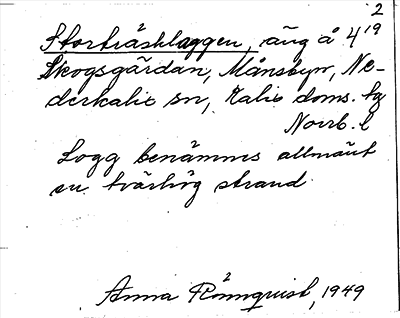 2
Storträsklaggen, äng å 4¹⁹
Skogsgärdan, Månsbyn, Ne-
derkalix sn, Kalix doms. tg
Norrb. l
Logg benämnes allmänt
en tvärhög strand
Anna Rönnquist, 1949